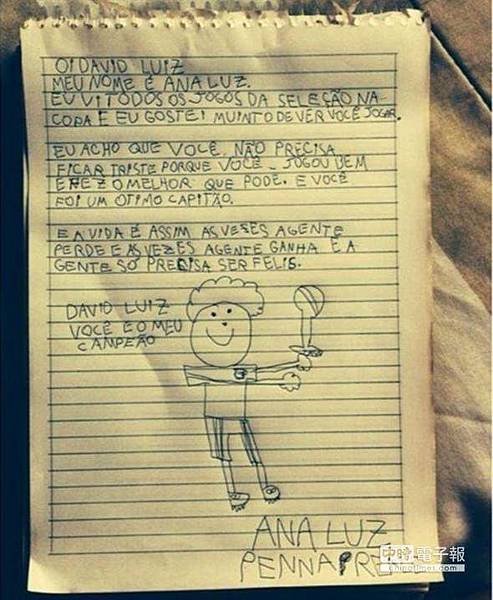 OI DAVID LUIZ
MEU NOME É ANA LUZ.
EU VI TODOS OS JOGOS DA SELEÇÃO NA
COPA E EU GOSTEI MUINTO DE VER VOCÊ JOGAR.
EU ACHO QUE VOCÊ NÃO PRECISA
FICAR TRISTE PORQUE VOCÊ JOGOU BEM
E FEZ O MELHOR QUE PODE. E VOCÊ
FOI UM OTIMO CAPITÃO.
E A VIDA É ASSIM AS VESES AGENTE
PERDE E AS VEZES AGENTE GANHA E A
GENTE SÓ PRECISA SER FELIS.
DAVID LUIZ
VOCÊ E O MEU
CAMPEÃO
ANA LUZ
中時電子報
chinatimes.com